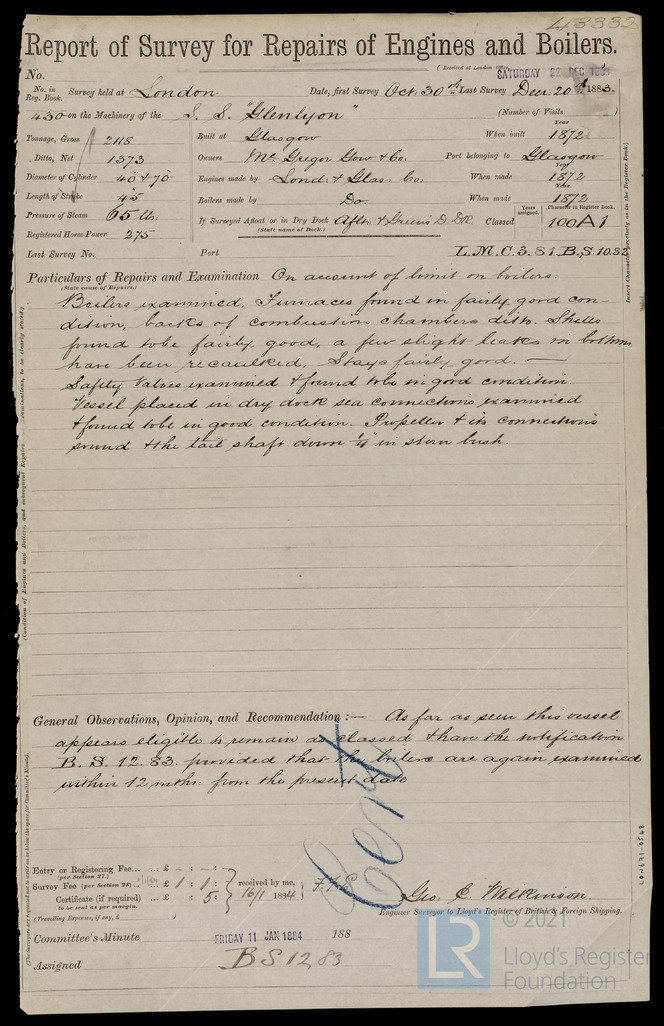 43332
Report of Survey for Repairs of Engines and Boilers.
(Received at London Office
No. SATURDAY 22 DEC 1883
No. in Reg. Book. Survey held at London Date, first Survey Oct: 30th Last Survey Decr: 20th 1883.
430 on the Machinery of the S. S. "Glenlyon" (Number of Visits
Tonnage, Gross 2118 Built at Glasgow When built Year 1872
Ditto, Net 1373 Owners McGregor Gow & Co. Port belonging to Glasgow
Diameter of Cylinder 40 & 70 Engines made by Lond: & Glas: Co: When made Year 1872
Length of Stroke 45 Boilers made by Do. When made Year 1872
Pressure of Steam 65 lbs. If Surveyed Afloat or in Dry Dock Aflt. & Green's D. Dk. Classed Years assigned. Character in Register Book. 100A1
(State name of Dock.)
Registered Horse Power 275
Last Survey No. Port L.M.C.3.81.B.S.10.82
Particulars of Repairs and Examination On account of limit on boilers.
(State cause of Repairs.)
Boilers examined. Furnaces found in fairly good con-
dition, backs of combustion chambers ditto. Shells
found to be fairly good, a few slight leaks in bottoms
have been recaulked. Stays fairly good. —
Safety Valves examined & found to be in good condition.
Vessel placed in dry dock sea connections examined
& found to be in good condition. Propeller & its connections
sound & the tail shaft down 1/4" in stern bush.
General Observations, Opinion, and Recommendation:— As far as seen this vessel
appears eligible to remain as classed & have the notification
B.S. 12.83. provided that the boilers are again examined
within 12 mths: from the present date
Cert
Entry or Registering Fee... ... £ - : - :
(per Section 27.)
Survey Fee (per Section 28) ... £ 1 : 1 : received by me,
Certificate (if required) ... : 5 : 16/1 1884
to be sent as per margin.
(Travelling Expenses, if any, £
Geo. C. Wilkinson
Engineer Surveyor to Lloyd's Register of British & Foreign Shipping.
Committee's Minute FRIDAY 11 JAN 1884 188
Assigned BS 12,83
Insert Character precisely as in the Register Book.)
(Condition of Engines and Boilers, and subsequent Repairs
LON671-0568
LR
© 2021
Lloyd's Register
Foundation